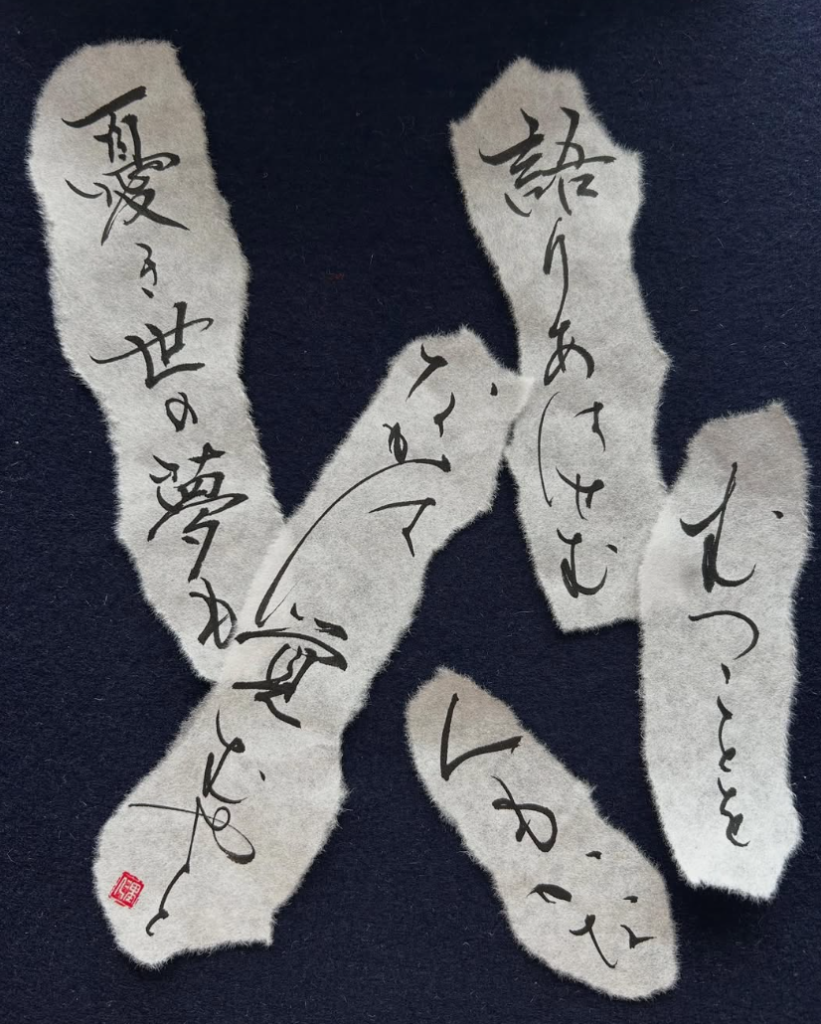 むつことを
語りあはせむ
人もかな
憂き世の夢も
なかは覚むやと